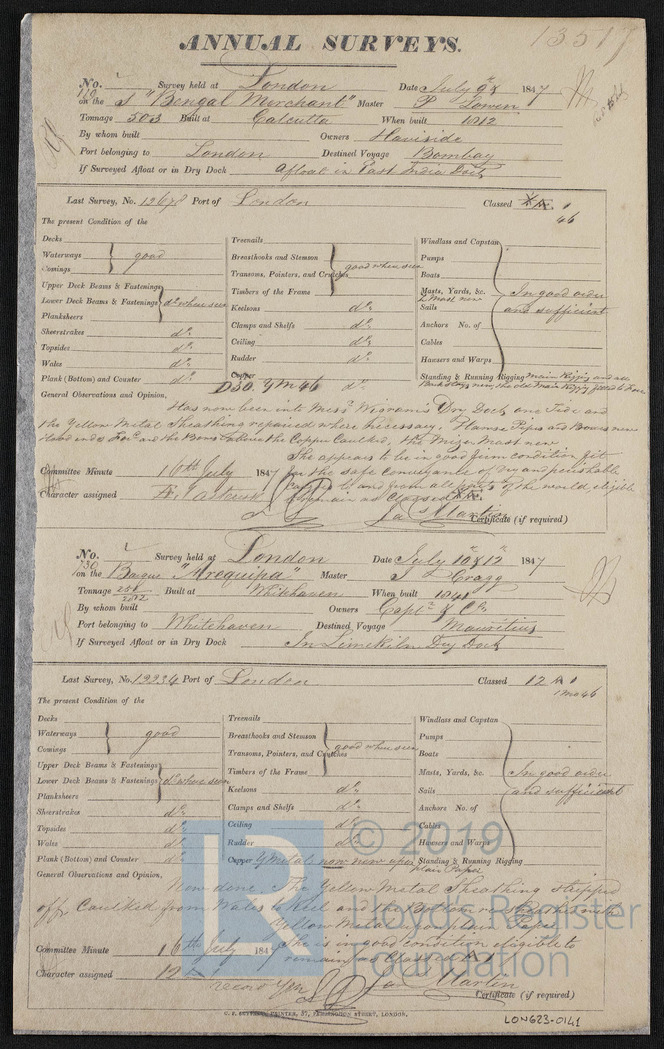 13517
ANNUAL SURVEYS.
No. 129 Survey held at London Date July 9th 1847
on the S "Bengal Merchant" Master P Lowen
Tonnage 503 Built at Calcutta When built 1812
By whom built Owners Haviside
Port belonging to London Destined Voyage Bombay
If Surveyed Afloat or in Dry Dock Afloat in East India Dock
Last Survey, No. 12678 Port of London Classed Æ 1
46
The present Condition of the
Decks
Waterways good
Comings
Upper Deck Beams & Fastenings
Lower Deck Beams & Fastenings do where seen
Planksheers
Sheerstrakes do
Topsides do
Wales do
Plank (Bottom) and Counter do
Treenails
Breasthooks and Stemson good where seen
Transoms, Pointers, and Crutches
Timbers of the Frame
Keelsons do
Clamps and Shelfs do
Ceiling do
Rudder do
Copper D30. YM46 do
Windlass and Capstan
Pumps
Boats
Masts, Yards, &c. In good order
Mast new
Sails and sufficient
Anchors No. of
Cables
Hawsers and Warps
Standing & Running Rigging Main Rigging and all
Backstays new, the old Main Rigging fitted to Fore
General Observations and Opinion,
Has now been into Messrs Wigrams Dry Dock one Tide and
the Yellow Metal Sheathing repaired where necessary. Hawse Pipes and Bows new
and the Bows above the Copper Caulked, the Mizen Mast new
She appears to be in good firm condition fit
for the safe conveyance of dry and perishable
cargoes to and from all parts of the world, eligible
to remain as Classed Æ 1.
Committee Minute 16th July 1847
Character assigned Æ 1
Jas Martin
Certificate (if required)
No. 130 Survey held at London Date July 10 & 12th 1847
on the Barque "Arequipa" Master J L Cragg
Tonnage Built at Whitehaven When built 1841
By whom built Owners Captn & Co.
Port belonging to Whitehaven Destined Voyage Mauritius
If Surveyed Afloat or in Dry Dock In Limekiln Dry Dock
Last Survey, No. 12234 Port of London Classed 12 A 1
1mo46
The present Condition of the
Decks
Waterways good
Comings
Upper Deck Beams & Fastenings
Lower Deck Beams & Fastenings do where seen
Planksheers
Sheerstrakes do
Topsides do
Wales do
Plank (Bottom) and Counter do
Treenails
Breasthooks and Stemson good where seen
Transoms, Pointers, and Crutches
Timbers of the Frame
Keelsons do
Clamps and Shelfs do
Ceiling do
Rudder do
Copper Y Metal now new upon
plain Paper
Windlass and Capstan
Pumps
Boats
Masts, Yards, &c. In good order
Sails and sufficient
Anchors No. of
Cables
Hawsers and Warps
Standing & Running Rigging
General Observations and Opinion,
Now done The Yellow Metal Sheathing stripped
off, Caulked from Wales to Keel and the Bottom
Yellow Metal
She is in good condition eligible to
remain as Classed 12 A 1
Committee Minute 16th July 184
Character assigned 12 A 1
record YM
Jas Martin
Certificate (if required)
LON623-0141
© 2019
Lloyd's Register
Foundation